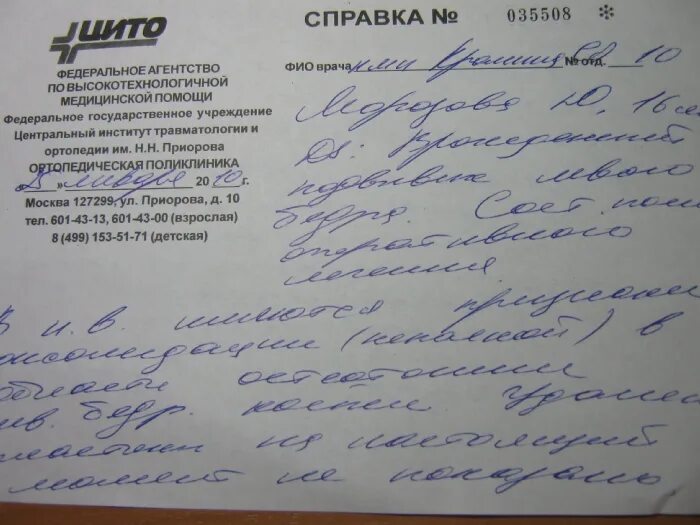 ЦИТО
ФЕДЕРАЛЬНОЕ АГЕНТСТВО
ПО ВЫСОКОТЕХНОЛОГИЧНОЙ
МЕДИЦИНСКОЙ ПОМОЩИ
Федеральное государственное учреждение
Центральный институт травматологии и
ортопедии им. Н.Н. Приорова
ОРТОПЕДИЧЕСКАЯ ПОЛИКЛИНИКА
25 » января 2010 г.
Москва 127299, ул. Приорова, д. 10
тел. 601-43-13, 601-43-00 (взрослая)
8 (499) 153-51-71 (детская)
СПРАВКА № 035508
ФИО врача кмн № отд. 10
Морозова Ю, 16 л
DS: Врожденный
подвывих левого
бедра. Сост. после
оперативного
лечения
В н.в. имеются признаки
консолидации (неполной) в
области остеотомии
лев. бедр. кости. Удаление
пластины на настоящий
момент не показано